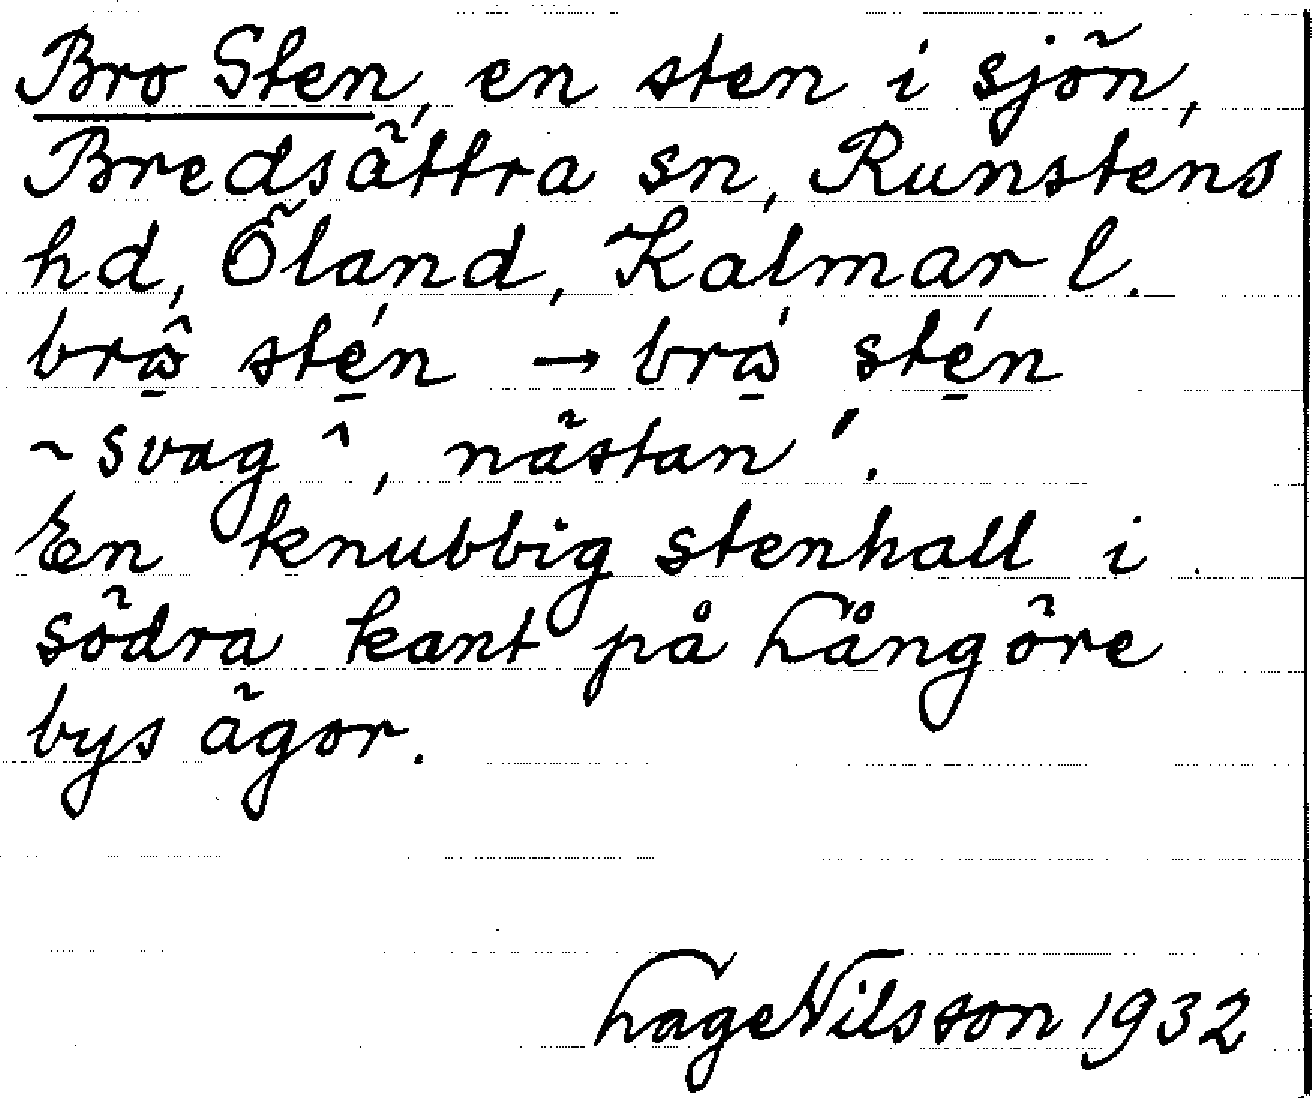 Bro Sten, en sten i sjön,
Bredsättra sn, Runstens
hd, Öland, Kalmar l.
brω̂ stén → brὼ stén
~ svag ^, nästan ′.
En knubbig stenhall i
södra kant på Långöre
bys ägor.
Lage Nilsson 1932